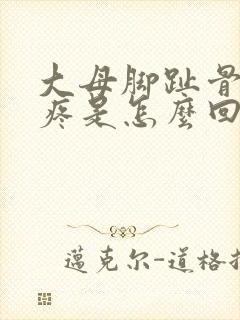 大母脚趾骨
疼是怎麼回
邁克尔-道格拉